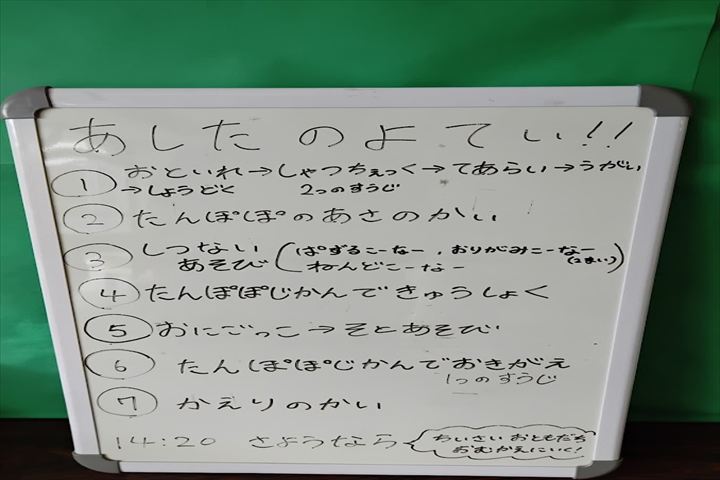 あしたのよてい!!
① おといれ→しゃつちぇっく→てあらい→うがい
→しょうどく 2つのすうじ
② たんぽぽのあさのかい
③ しつない (ぱずるこーなー、おりがみこーなー
あそび ねんどこーなー (2まい))
④ たんぽぽじかんできゅうしょく
⑤ おにごっこ→そとあそび
⑥ たんぽぽじかんでおきがえ
1つのすうじ
⑦ かえりのかい
14:20 さようなら ちいさいおともだち
おむかえにいく!